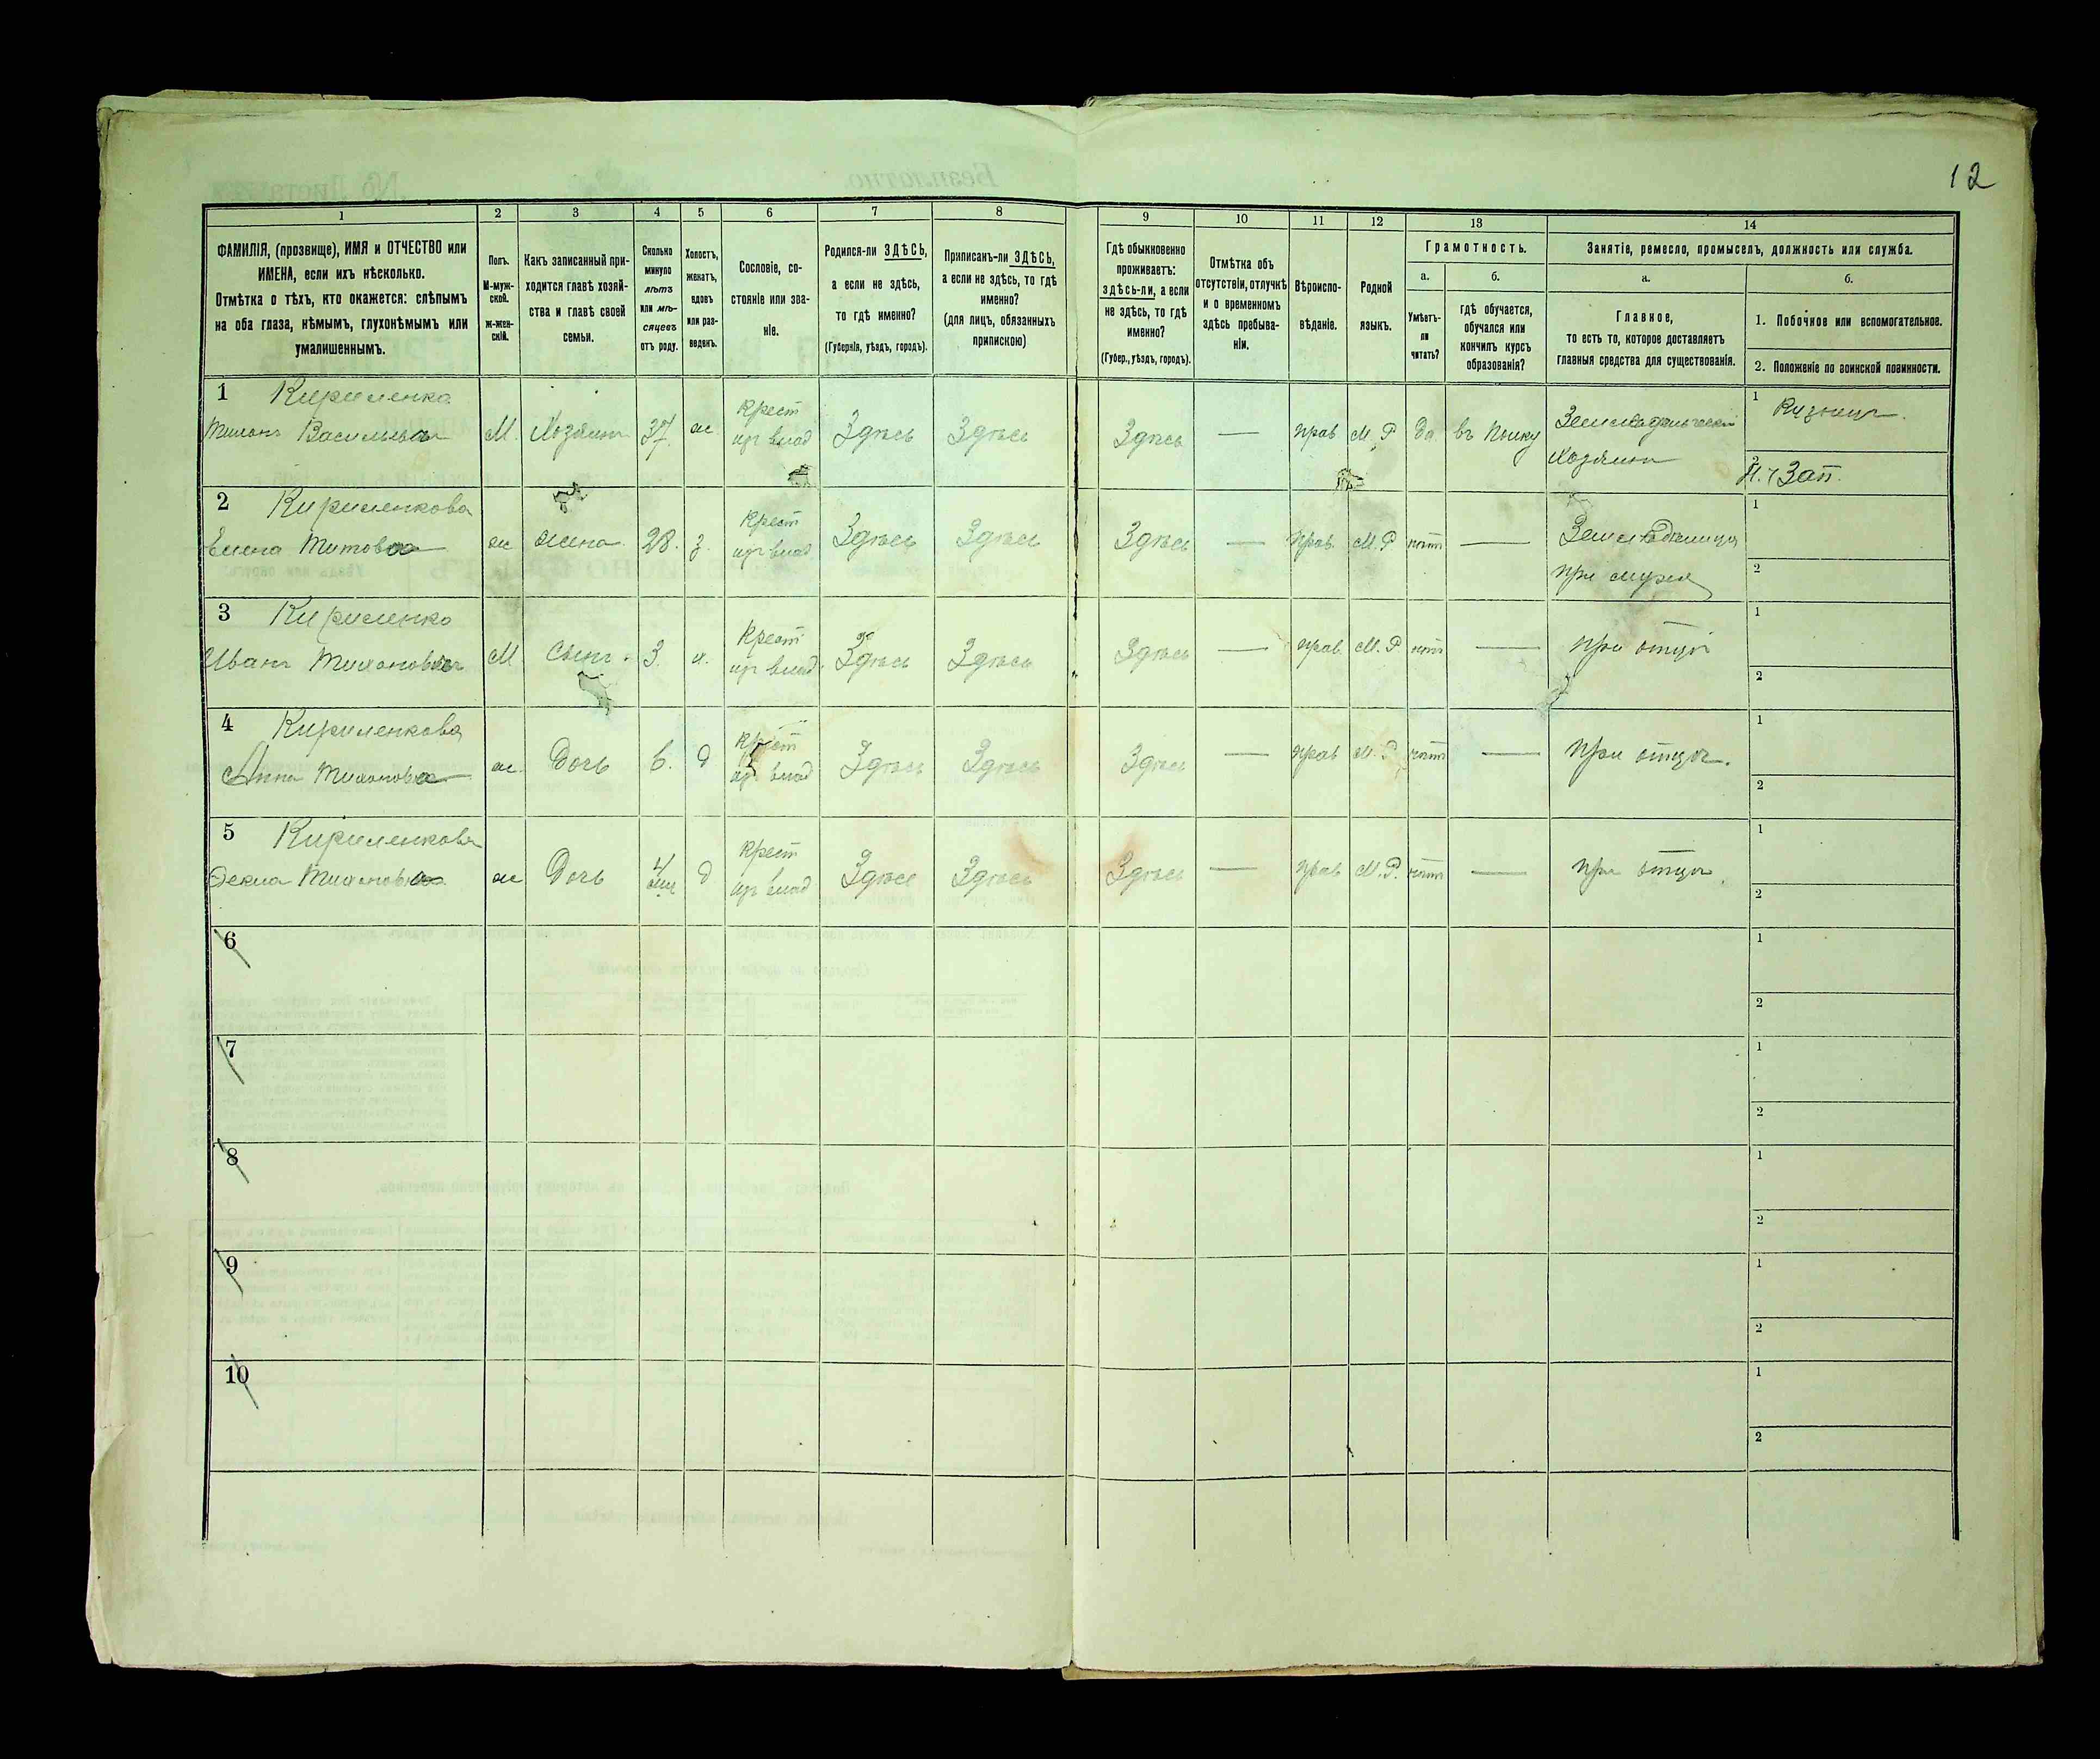 12
1 2 3 4 5 6 7 8 9 10 11 12 13 14
ФАМИЛІЯ, (прозвище), ИМЯ и ОТЧЕСТВО или
ИМЕНА, если ихъ нѣсколько.
Отмѣтка о тѣхъ, кто окажется: слѣпымъ
на оба глаза, нѣмымъ, глухонѣмымъ или
умалишеннымъ.
Полъ.
М-муж-
ской.
ж-жен-
скій.
Какъ записанный при-
ходится главѣ хозяй-
ства и главѣ своей
семьи.
Сколько
минуло
лѣтъ
или мѣ-
сяцевъ
отъ роду.
Холостъ,
женатъ,
вдовъ
или раз-
веденъ.
Сословіе, со-
стояніе или зва-
ніе.
Родился-ли ЗДѢСЬ,
а если не здѣсь,
то гдѣ именно?
(Губернія, уѣздъ, городъ).
Приписанъ-ли ЗДѢСЬ,
а если не здѣсь, то гдѣ
именно?
(для лицъ, обязанныхъ
припискою)
Гдѣ обыкновенно
проживаетъ:
здѣсь-ли, а если
не здѣсь, то гдѣ
именно?
(Губер., уѣздъ, городъ).
Отмѣтка объ
отсутствіи, отлучкѣ
и о временномъ
здѣсь пребыва-
ніи.
Вѣроиспо-
вѣданіе.
Родной
языкъ.
Грамотность.
а.
Умѣетъ-
ли
читать?
б.
гдѣ обучается,
обучался или
кончилъ курсъ
образованія?
Занятіе, ремесло, промыселъ, должность или служба.
а.
Главное,
то есть то, которое доставляетъ
главныя средства для существованія.
б.
1. Побочное или вспомогательное.
2. Положеніе по воинской повинности.
1 Кириленко
Тихонъ Васильевъ
М. Хозяинъ 37. ж Крест
из влад Здѣсь Здѣсь Здѣсь — прав М. Р да въ полку Земледѣльческій
хозяинъ
1 Кузнецъ.
2 Зап.
2 Кириленкова
Елена Титова
ж жена 28. з. Крест
из влад Здѣсь Здѣсь Здѣсь — прав. М. Р нѣт —
при мужѣ
1
2
3 Кириленко
Иванъ Тихоновъ
М сынъ. 3. х. Крест
из влад. Здѣсь Здѣсь Здѣсь — прав. М. Р нѣт — при отцѣ
1
2
4 Кириленкова
Анна Тихонова
ж. Дочь 6. д Крест
из влад Здѣсь Здѣсь Здѣсь — прав М. Р нѣт — при отцѣ.
1
2
5 Кириленкова
Фекла Тихонова
ж Дочь 4
мѣс д Крест
из влад Здѣсь Здѣсь Здѣсь — прав М. Р. нѣт — при отцѣ.
1
2
6
1
2
7
1
2
8
1
2
9
1
2
10
1
2